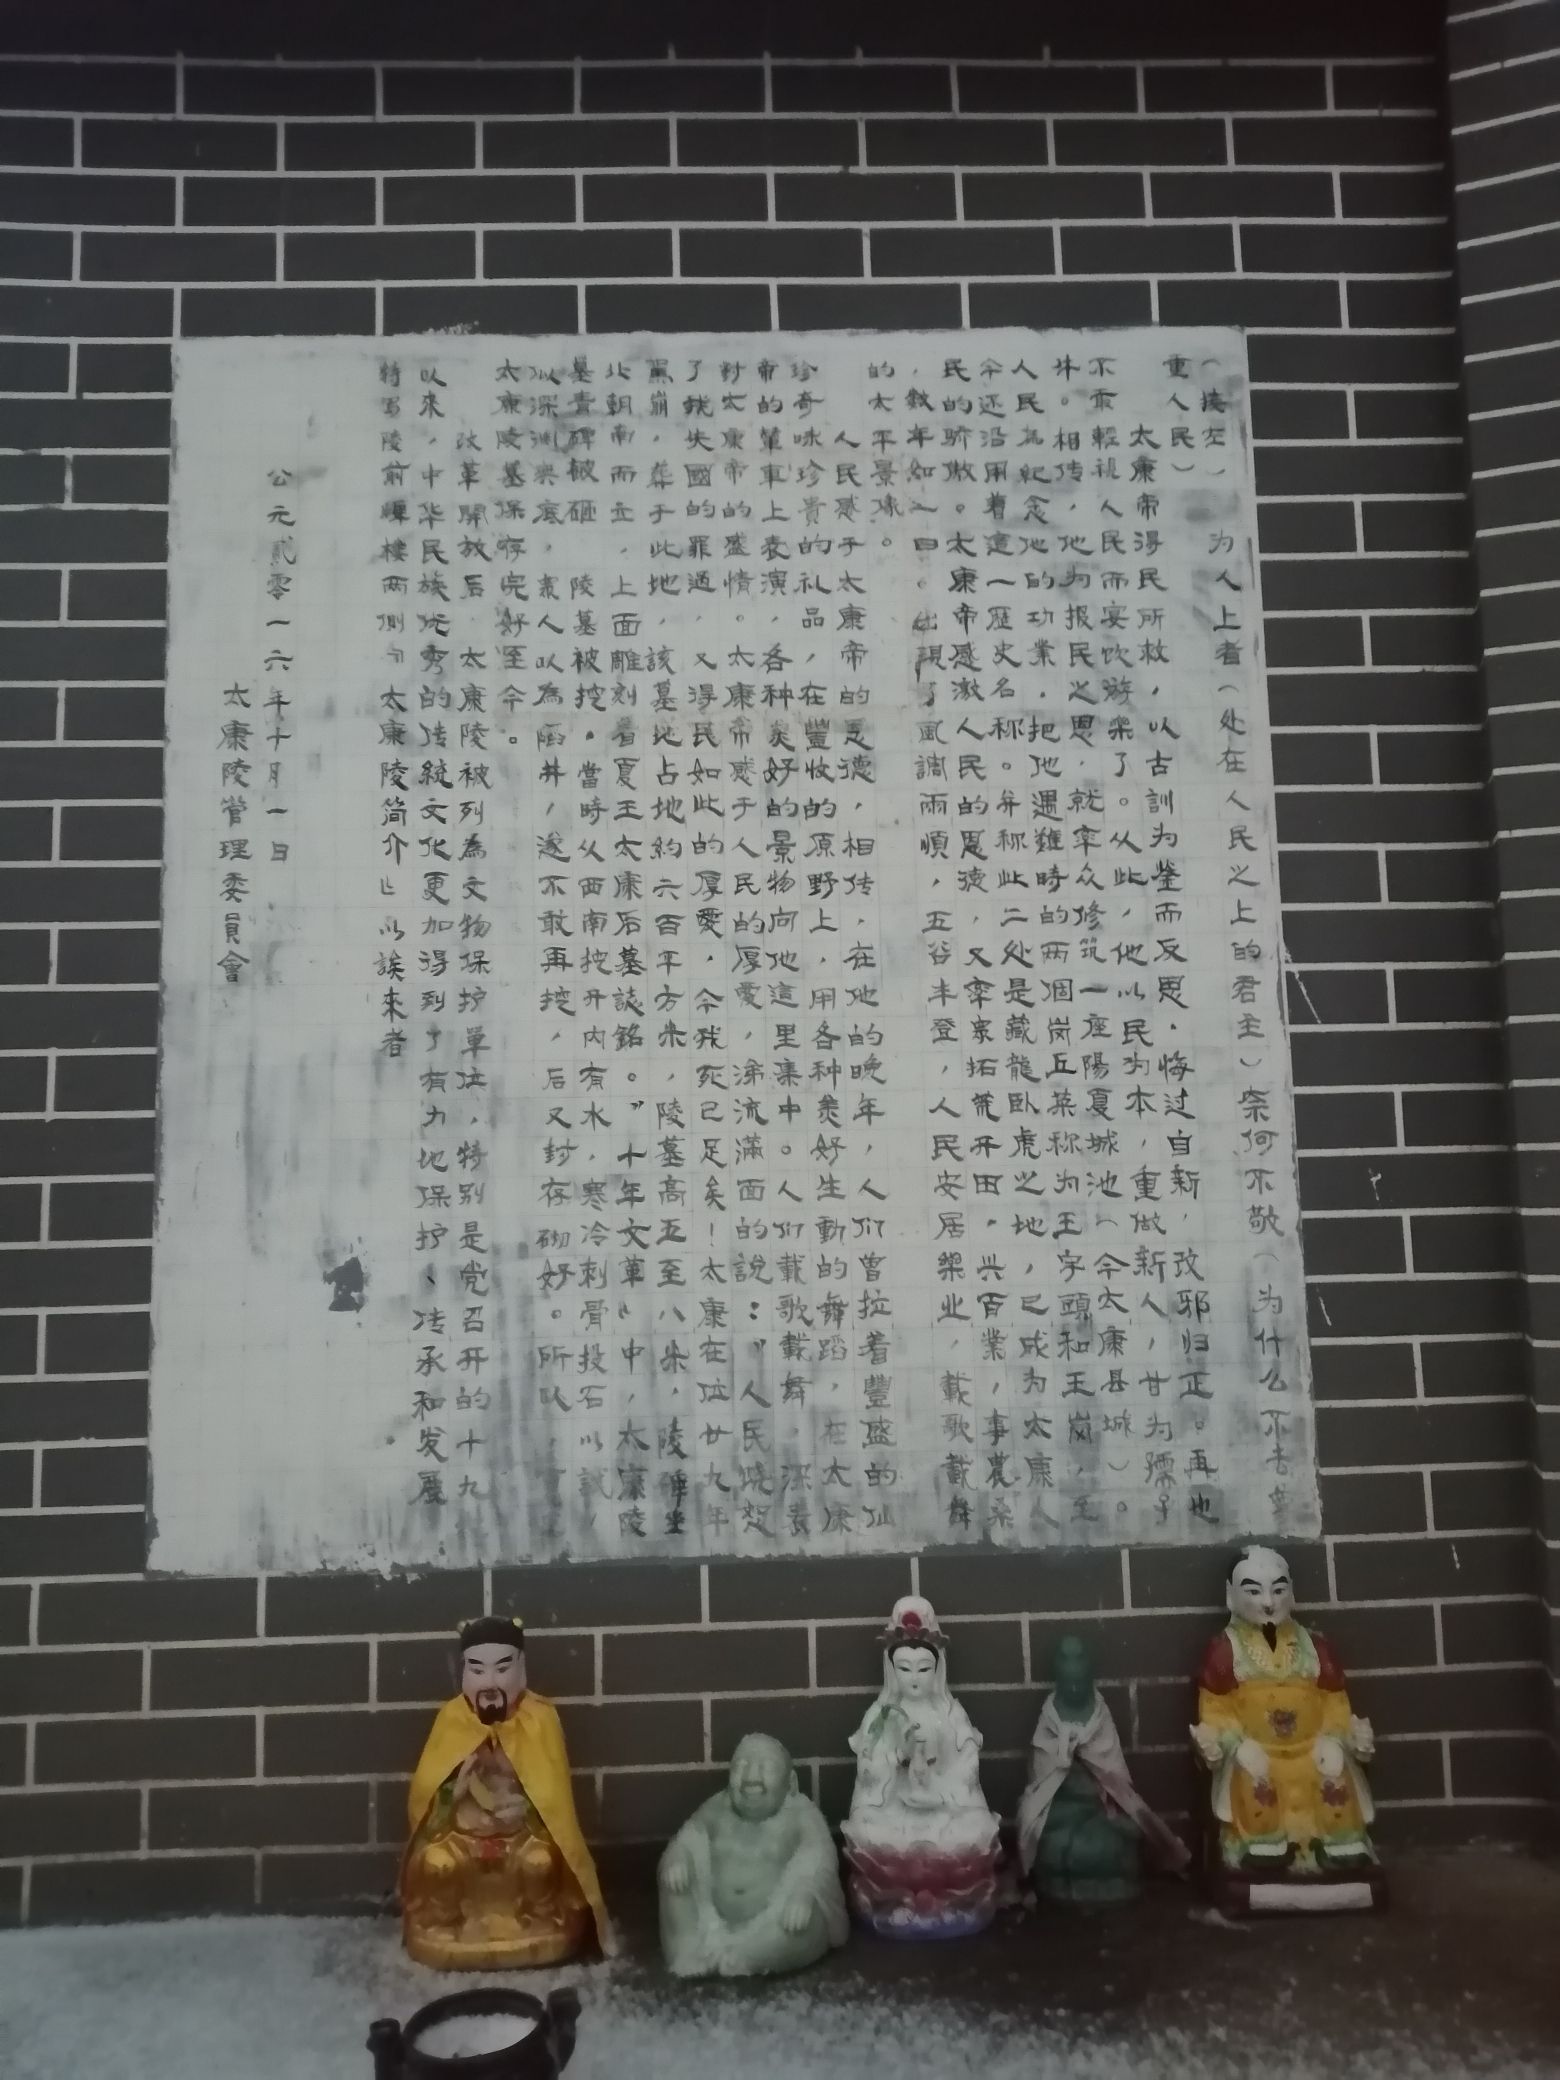 （接左）为人上者（处在人民之上的君主）奈何不敬（为什么不去尊
重人民）
太康帝得民所救，以古訓为鉴而反思，悔过自新，改邪归正。再也
不敢輕視人民而宴饮游樂了。从此，他以民为本，重做新人，甘为孺子
牛。相传，他为报民之恩，就率众修筑一座陽夏城池（今太康县城）。
人民为紀念他的功業，把他遇難時的两個岗丘菜称为王字頭和王岗，至
今还沿用着這一歷史名称。并称此二处是藏龍卧虎之地，已成为太康人
民的骄傲。太康帝感激人民的恩德，又率衆拓荒开田，兴百業，事農桑
，数年如一日。出現了風調雨順，五谷丰登，人民安居樂业，載歌載舞
的太平景像。
人民感于太康帝的恩德，相传，在他的晚年，人们曾拉着豐盛的仙
珍奇味珍贵的礼品，在豐收的原野上，用各种美好生動的舞蹈，在太康
帝的輦車上表演，各种美好的景物向他這里集中。人们載歌載舞，深表
對太康帝的盛情。太康帝感于人民的厚愛，涕流滿面的說：“人民饒恕
了我失國的罪过，又得民如此的厚愛，今我死已足矣！太康在位廿九年
駕崩，葬于此地，該墓地占地約六百平方米，陵墓高五至八米，陵碑坐
北朝南而立，上面雕刻着夏王太康后墓誌銘。”十年文革”中，太康陵
墓青碑被砸，陵墓被挖。當時从西南挖开内有水，寒冷刺骨投石以試，
似深渊無底，衆人以為陷井，遂不敢再挖，后又封存砌好。所以，
太康陵墓保存完好至今。
改革開放后，太康陵被列為文物保护單位，特别是党召开的十九
以来，中华民族优秀的传統文化更加得到了有力地保护、传承和发展。
特写陵前碑楼两側 太康陵简介 以誒来者
公元貳零一六年十月一日
太康陵管理委員會